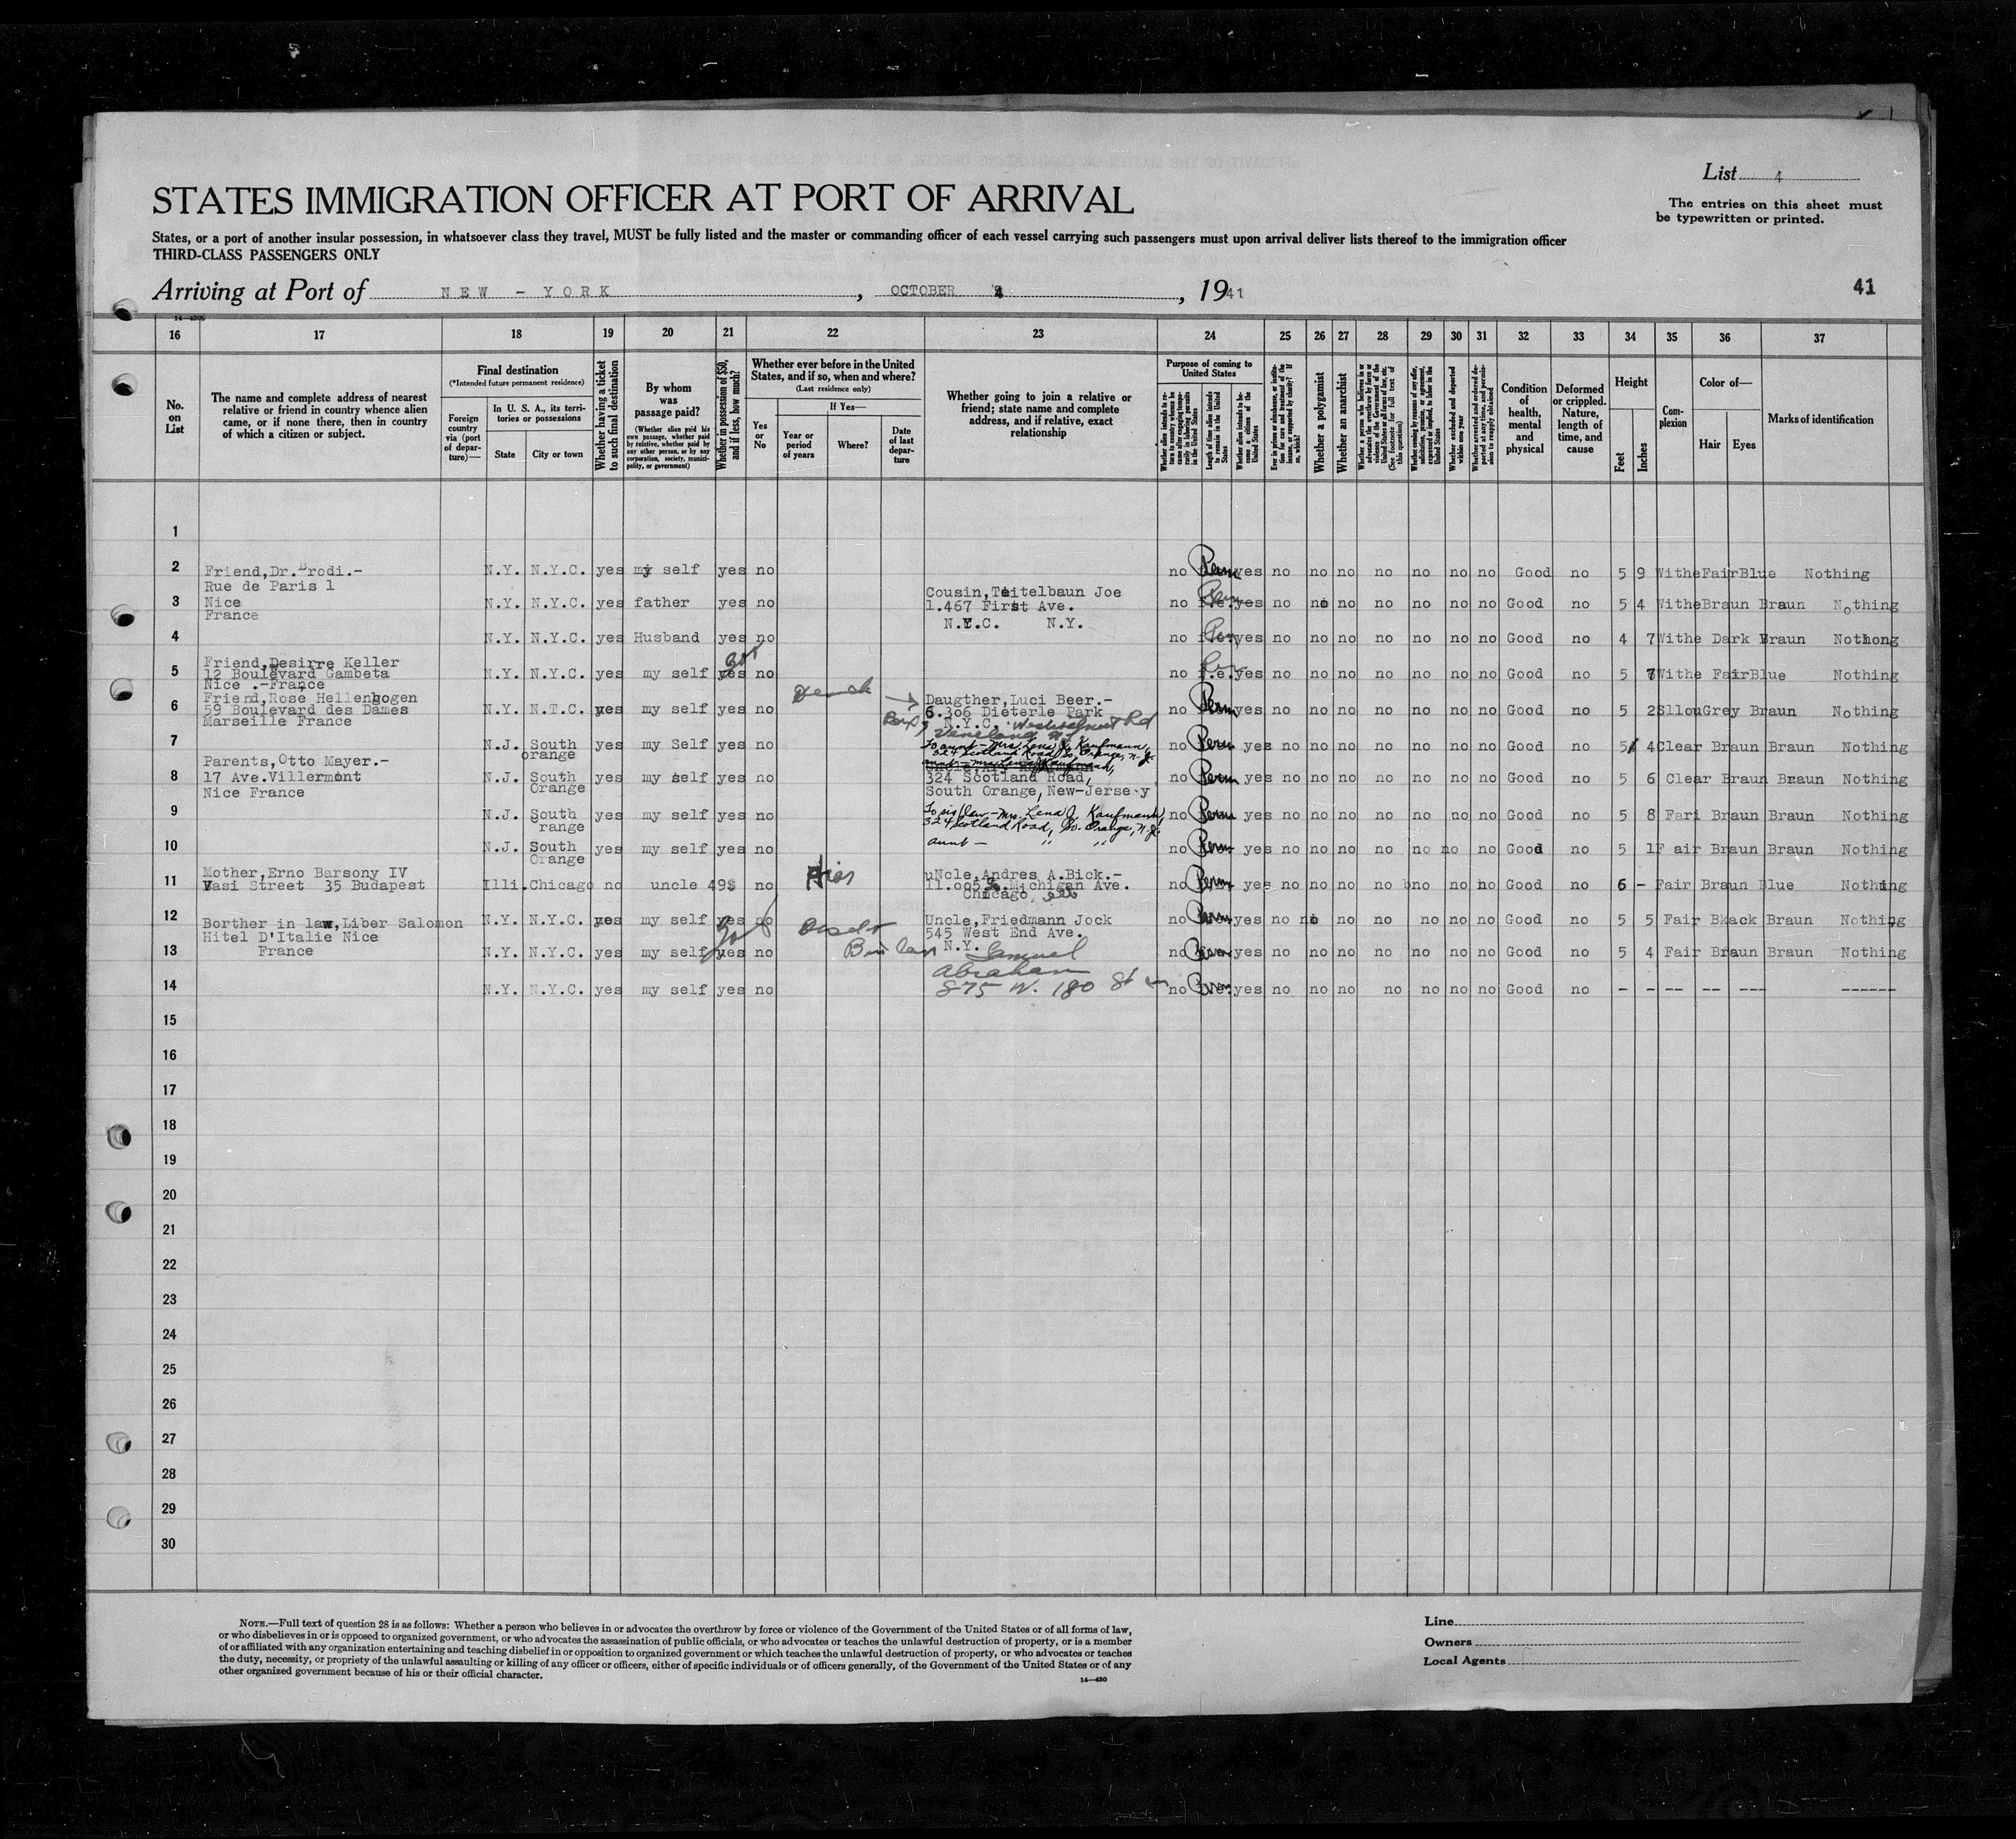 List 4
The entries on this sheet must
be typewritten or printed.
STATES IMMIGRATION OFFICER AT PORT OF ARRIVAL
States, or a port of another insular possession, in whatsoever class they travel, MUST be fully listed and the master or commanding officer of each vessel carrying such passengers must upon arrival deliver lists thereof to the immigration officer
THIRD-CLASS PASSENGERS ONLY
Arriving at Port of NEW - YORK, OCTOBER 4, 1941
41
16 17 18 19 20 21 22 23 24 25 26 27 28 29 30 31 32 33 34 35 36 37
No. on List
The name and complete address of nearest
relative or friend in country whence alien
came, or if none there, then in country
of which a citizen or subject.
Final destination
(*Intended future permanent residence)
Foreign country via (port of departure)—
In U. S. A., its territories or possessions
State
City or town
Whether having a ticket to such final destination
By whom was passage paid?
(Whether alien paid his own passage, whether paid by relative, whether paid by any other person, or by any corporation, society, municipality, or government)
Whether in possession of $50, and if less, how much?
Whether ever before in the United
States, and if so, when and where?
(Last residence only)
If Yes—
Yes or No
Year or period of years
Where?
Date of last departure
Whether going to join a relative or
friend; state name and complete
address, and if relative, exact
relationship
Purpose of coming to United States
Length of time alien intends to remain in the United States
Whether alien intends to become a citizen of the United States
Whether a polygamist
Whether an anarchist
Whether excluded and deported within one year
Condition of health, mental and physical
Deformed or crippled. Nature, length of time, and cause
Height
Feet
Inches
Complexion
Color of—
Hair
Eyes
Marks of identification
1
2 Friend,Dr. Brodi.- N.Y. N.Y.C. yes my self yes no no Perm yes no no no no no no no Good no 5 9 Withe Fair Blue Nothing
Rue de Paris 1
Cousin,Teitelbaun Joe
3 Nice N.Y. N.Y.C. yes father yes no 1.467 First Ave. no yes no no no no no no no Good no 5 4 Withe Braun Braun Nothing
France
N.Y.C. N.Y.
4 N.Y. N.Y.C. yes Husband yes no no Per yes no no no no no no no Good no 4 7 Withe Dark Braun Nothong
Friend,Desirre Keller
5 12 Boulevard Gambeta N.Y. N.Y.C. yes my self yes no no yes no no no no no no no Good no 5 7 Withe Fair Blue Nothing
Nice .-France
Friend,Rose Hellenbogen
Daugther,Luci Beer.-
6 59 Boulevard des Dames N.Y. N.T.C. yes my self yes no 6.306 Dieterle Park no Perm yes no no no no no no no Good no 5 2 Sllou Grey Braun Nothing
Marseille France
N.Y.C.
7 N.J. South orange yes my Self yes no To aunt - Mrs. Lena J. Kaufmann, no Perm yes no no no no no no no Good no 5 4 Clear Braun Braun Nothing
324 Scotland Road, So. Orange, N.J.
Parents,Otto Mayer.-
aunt - Mrs. Lena J. Kaufmann,
8 17 Ave.Villermont N.J. South Orange yes my self yes no 324 Scotland Road, no Perm yes no no no no no no no Good no 5 6 Clear Braun Braun Nothing
Nice France
South Orange,New-Jersey
9 N.J. South range yes my self yes no To sis/law - Mrs. Lena J. Kaufmann, no Perm yes no no no no no no no Good no 5 8 Fari Braun Braun Nothing
324 Scotland Road, So. Orange, N.J.
10 N.J. South Orange yes my self yes no aunt - " " no Perm yes no no no no no no no Good no 5 1 F air Braun Braun Nothing
Mother,Erno Barsony IV
uNcle,Andres A.Bick.-
11 Vasi Street 35 Budapest Illi. Chicago no uncle 49$ no Hias 11.005 S. Michigan Ave. no Perm yes no no no no no no no Good no 6 - Fair Braun Blue Nothing
Chicago
12 Borther in law,Liber Salomon N.Y. N.Y.C. yes my self yes no Uncle,Friedmann Jock no yes no no no no no no no Good no 5 5 Fair Bkack Braun Nothing
Hitel D'Italie Nice
545 West End Ave.
13 France N.Y. N.Y.C. yes my self yes no N.Y. Samuel no yes no no no no no no no Good no 5 4 Fair Braun Braun Nothing
Abraham
14 N.Y. N.Y.C. yes my self yes no 875 W. 180 St no yes no no no no no no no Good no - -- -- -- --- ------
15
16
17
18
19
20
21
22
23
24
25
26
27
28
29
30
NOTE.—Full text of question 28 is as follows: Whether a person who believes in or advocates the overthrow by force or violence of the Government of the United States or of all forms of law,
or who disbelieves in or is opposed to organized government, or who advocates the assassination of public officials, or who advocates or teaches the unlawful destruction of property, or is a member
of or affiliated with any organization entertaining and teaching disbelief in or opposition to organized government or which teaches the unlawful destruction of property, or who advocates or teaches
the duty, necessity, or propriety of the unlawful assaulting or killing of any officer or officers, either of specific individuals or of officers generally, of the Government of the United States or of any
other organized government because of his or their official character.
14—430
Line
Owners
Local Agents